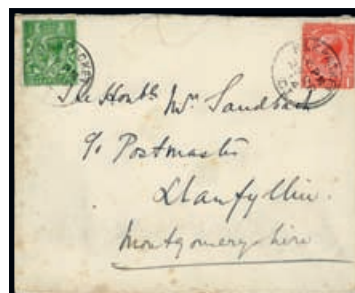 The Honble Mrs Sandbach
c/o Postmaster
Llanfyllin.
Montgomeryshire